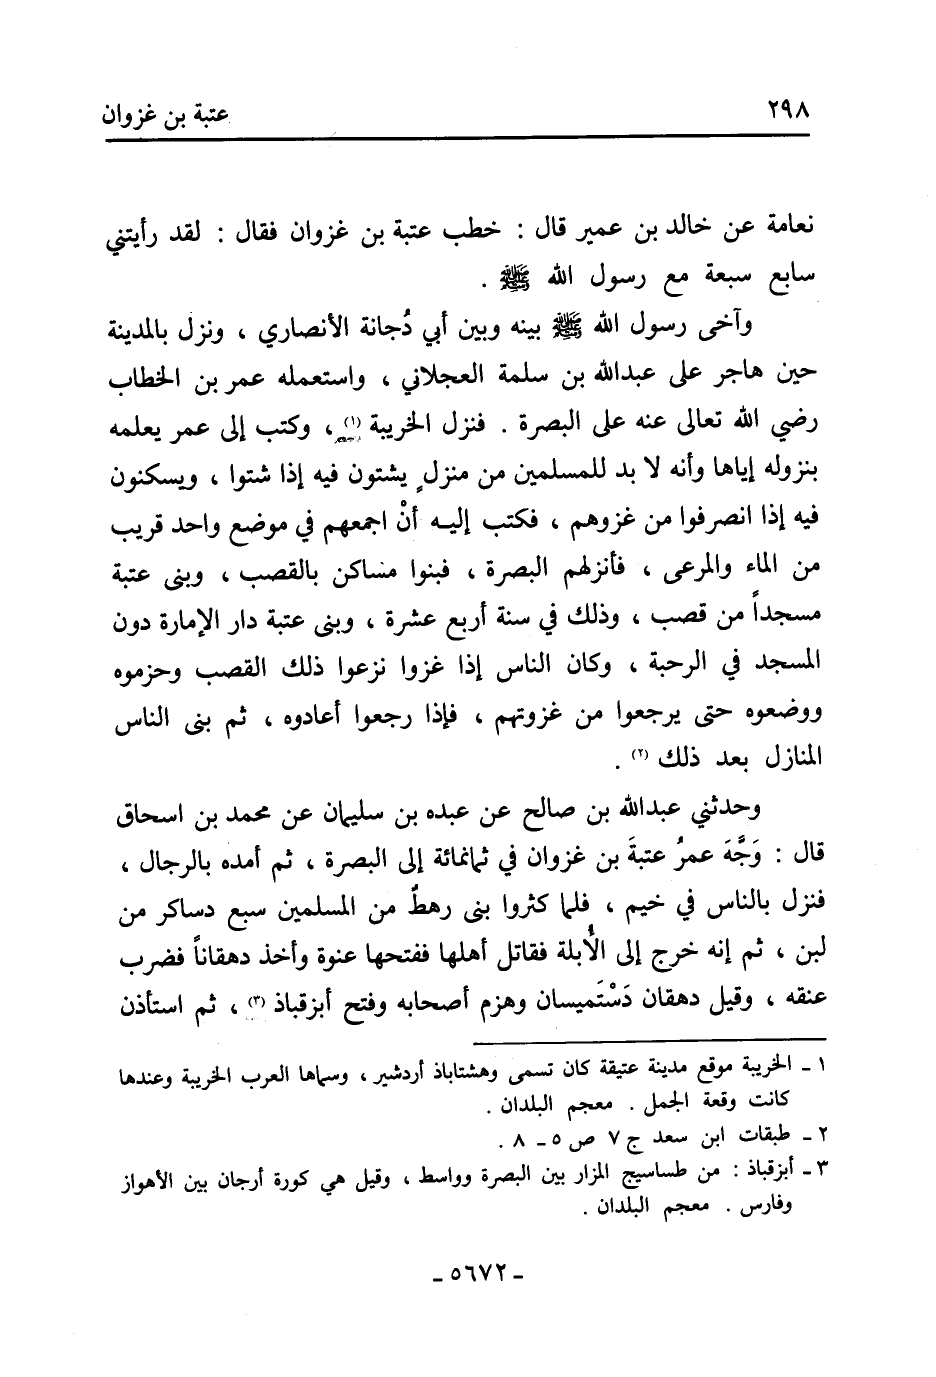 ٢٩٨
عتبة بن غزوان
نعامة عن خالد بن عمير قال : خطب عتبة بن غزوان فقال : لقد رأيتني
سابع سبعة مع رسول الله ﷺ .
وآخى رسول الله ﷺ بينه وبين أبي دُجانة الأنصاري ، ونزل بالمدينة
حين هاجر على عبدالله بن سلمة العجلاني ، واستعمله عمر بن الخطاب
رضي الله تعالى عنه على البصرة . فنزل الخريبة (١) ، وكتب إلى عمر يعلمه
بنزوله إياها وأنه لا بد للمسلمين من منزلٍ يشتون فيه إذا شتوا ، ويسكنون
فيه إذا انصرفوا من غزوهم ، فكتب إليه أنْ اجمعهم في موضع واحد قريب
من الماء والمرعى ، فأنزلهم البصرة ، فبنوا مساكن بالقصب ، وبنى عتبة
مسجداً من قصب ، وذلك في سنة أربع عشرة ، وبنى عتبة دار الإمارة دون
المسجد في الرحبة ، وكان الناس إذا غزوا نزعوا ذلك القصب وحزموه
ووضعوه حتى يرجعوا من غزوتهم ، فإذا رجعوا أعادوه ، ثم بنى الناس
المنازل بعد ذلك (٢) .
وحدثني عبدالله بن صالح عن عبده بن سليمان عن محمد بن اسحاق
قال : وَجَّهَ عمرُ عتبةَ بن غزوان في ثمانمائة إلى البصرة ، ثم أمده بالرجال ،
فنزل بالناس في خيم ، فلما كثروا بنى رهطٌ من المسلمين سبع دساكر من
لبن ، ثم إنه خرج إلى الأُبلة فقاتل أهلها ففتحها عنوة وأخذ دهقاناً فضرب
عنقه ، وقيل دهقان دَسْتَميسان وهزم أصحابه وفتح أبزقباذ (٣) ، ثم استأذن
١ ـ الخريبة موقع مدينة عتيقة كان تسمى وهشتاباذ أردشير ، وسماها العرب الخريبة وعندها
كانت وقعة الجمل . معجم البلدان .
٢ ـ طبقات ابن سعد ج ٧ ص ٥ ـ ٨ .
٣ ـ أبزقباذ : من طساسيج المزار بين البصرة وواسط ، وقيل هي كورة أرجان بين الأهواز
وفارس . معجم البلدان .
ـ ٥٦٧٢ ـ